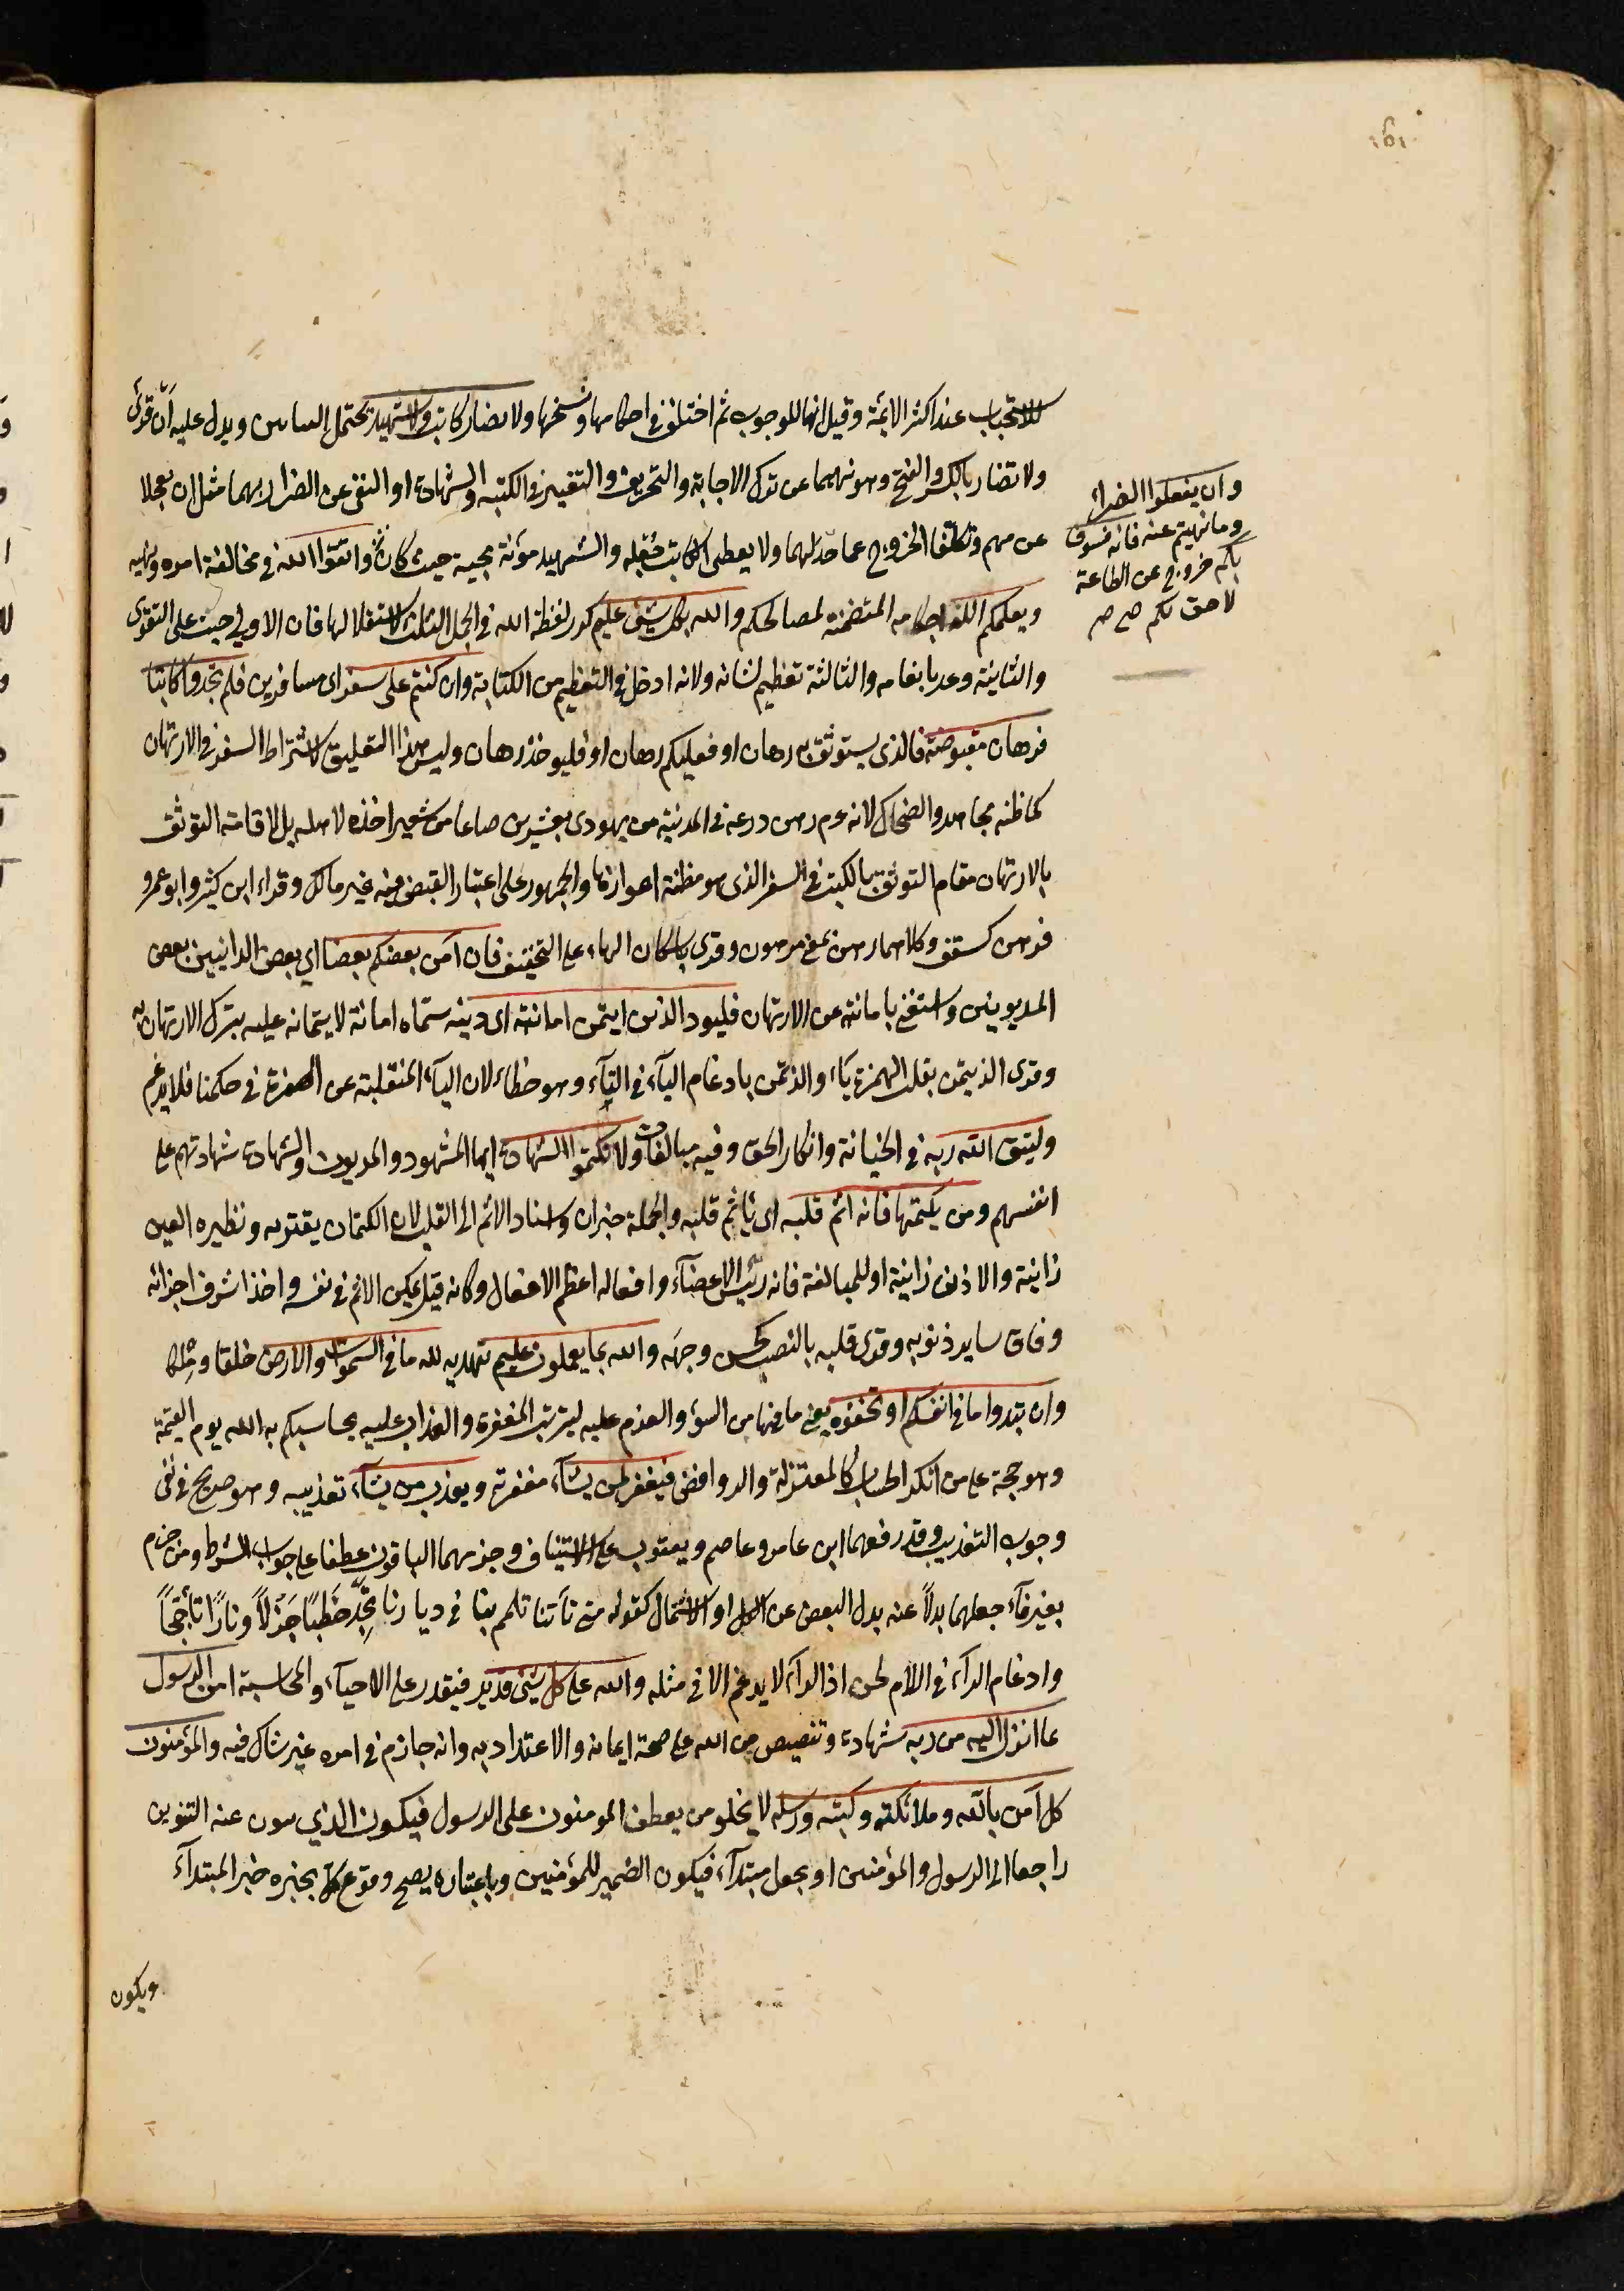 ١٥١
للاستحباب عند اكثر الايمة وقيل انها للوجوب ثم اختلف في احكامها ونسخها ولا يضار كاتب ولا شهيد يحتمل البنائين ويدل عليه انّه قرئ
ولا تضارر بالكسر والفتح وهو نهيهما عن ترك الاجابة والتحريف والتغيير في الكتبه والشهادة او النهى عن الضرار بهما مثل ان يعجلا
عن مهم وتكلفا الخروج عما حدّ لهما ولا يعطى الكاتب جُعْله والشهيد مؤنة مجيه حيث كان واتقوا الله في مخالفة امره ونهيه
ويعلمكم الله احكامه المتضمنة لمصالحكم والله بكل شئ عليم كرر لفظة الله في الجمل الثلث لاستقلالها فان الاولي حث على التقوى
والثانية وعد بانعامه والثالثة تعظيم لشانه ولانه ادخل في التعظيم من الكناية وان كنتم على سفر اى مسافرين فلم تجدوا كاتبا
فرهان مقبوضة فالذى يستوثق به رهان او فعليكم رهان او فليوخذ رهان وليس هذا التعليق لاشتراط السفر في الارتهان
كما ظنه مجاهد والضحاك لانه عم رهن درعه في المدينة من يهودى بعشرين صاعا من شعير اخذه لاهله بل لاقامة التوثق
بالارتهان مقام التوثق بالكتب في السفر الذى هو مظنة اعوازها والجمهور على اعتبار القبض فيه غير مالك وقراء ابن كثير وابو عمرو
فرهن كسقف وكلاهما رهن بمعنى مرهون وقرى باسكان الهاء على التخفيف فان امن بعضكم بعضا اي بعض الداينين بعض
المديونين واستغنى بامانته عن الارتهان فليود الذى ايتمن امانته اى دينه سماه امانة لايتمانه عليه بترك الارتهان به
وقرى الذيتمن بقلب الهمزة ياء والذتمن بادغام الياء في التاء وهو خطاء لان الياء المنقلبة عن الهمزة في حكمها فلا يدغم
وليتق الله ربه في الخيانة وانكار الحق وفيه مبالغات ولا تكتموا الشهادة ايها الشهود والمديون والشهادة شهادتهم على
انفسهم ومن يكتمها فانه اثم قلبه اى يأثم قلبه والجملة خبر ان واسناد الاثم الى القلب لان الكتمان يقترفه ونظيره العين
زانية والاذن زانية او للمبالغة فانه رئيس الاعضاء وافعاله اعظم الافعال وكانه قيل تمكن الاثم في نفسه واخذ اشرف اجزائه
وفاق ساير ذنوبه وقرى قلبه بالنصب كحسن وجهَه والله بما يعملون عليم تهديد لله ما في السموات والارض خلقا وملكا
وان تبدوا ما في انفسكم او تخفوه يعنى ما فيها من السوء والعزم عليه لترتب المغفرة والعذاب عليه يحاسبكم به الله يوم القيمة
وهو حجة على من انكر الحساب كالمعتزلة والروافض فيغفر لمن يشاء مغفرته ويعذب من يشاء تعذيبه وهو صريح في نفى
وجوب التعذيب وقد رفعهما ابن عامر وعاصم ويعقوب على الاستيناف وجزمهما الباقون عطفا على جواب الشرط ومن جزم
بغير فاء جعلهما بدلاً عنه بدل البعض عن الكل او الاشتمال كقوله متى تأتنا تلمم بنا في ديارنا تجِدْ حَطبًا جَزْلاً ونارًا تأججاً
وادغام الراء في اللام لحن اذ الراء لا يدغم الا في مثله والله على كل شئ قدير فيقدر على الاحياء والمحاسبة امن الرسول
بما انزل اليه من ربه شهادة وتنصيص من الله على صحة ايمانه والاعتداد به وانه جازم في امره غير شاك فيه والمؤمنون
كل آمن بالله وملائكته وكتبه ورسله لا يخلو من يعطف المومنون على الرسول فيكون الذي ينوب عنه التنوين
راجعا الى الرسول والمؤمنين او يجعل مبتدآء فيكون الضمير للمؤمنين وباعتباره يصح وقوع كل بخبره خبر المبتدآء
وان يفعلوا الضرار
وما نهيتم عنه فانه فسوق
بكم خروج عن الطاعة
لاحق بكم صح
ويكون